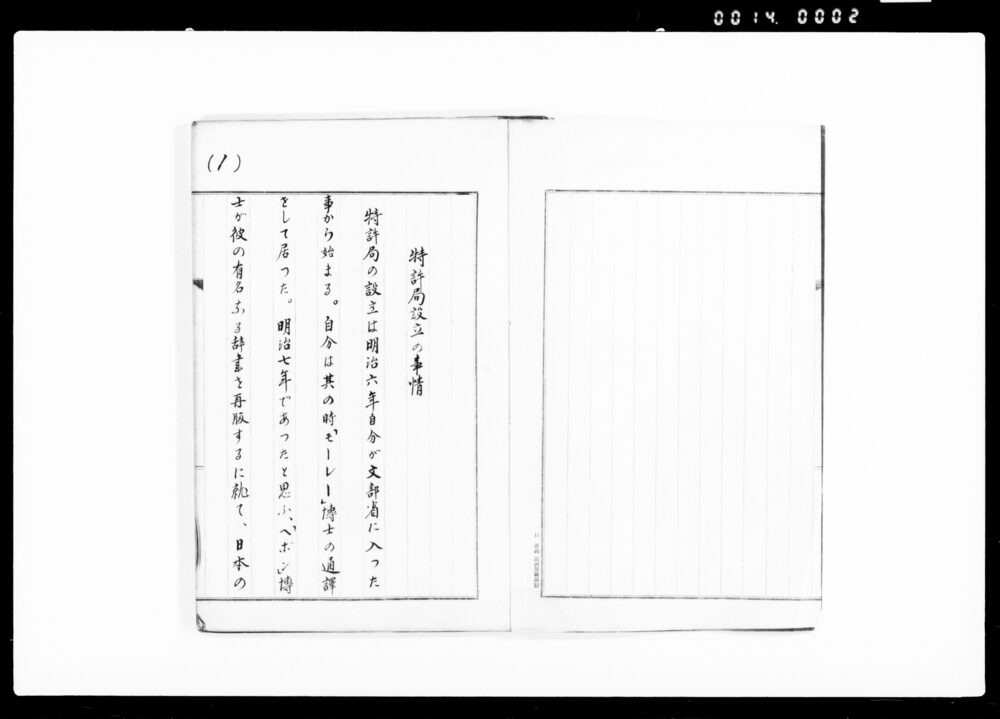 0014. 0002
(1)
特許局設立の事情
特許局の設立は明治六年自分が文部省に入つた
事から始まる。自分は其の時「モーレー」博士の通譯
をして居つた。明治七年であつたと思ふ、「ヘボン」博
士が彼の有名なる辞書を再版するに就て、日本の